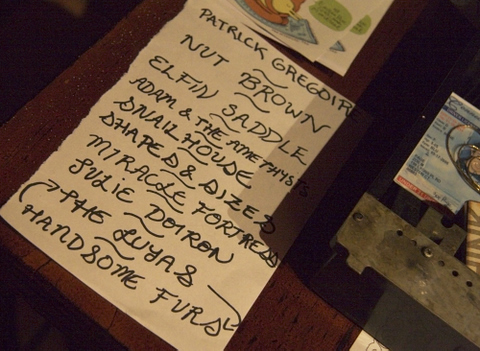 PATRICK GREGOIRE
NUT BROWN
ELFIN SADDLE
ADAM & THE AMETHYSTS
SNAIL HOUSE
SHAPES & SIZES
MIRACLE FORTRESS
JULIE DOIRON
THE LUYAS
HANDSOME FURS